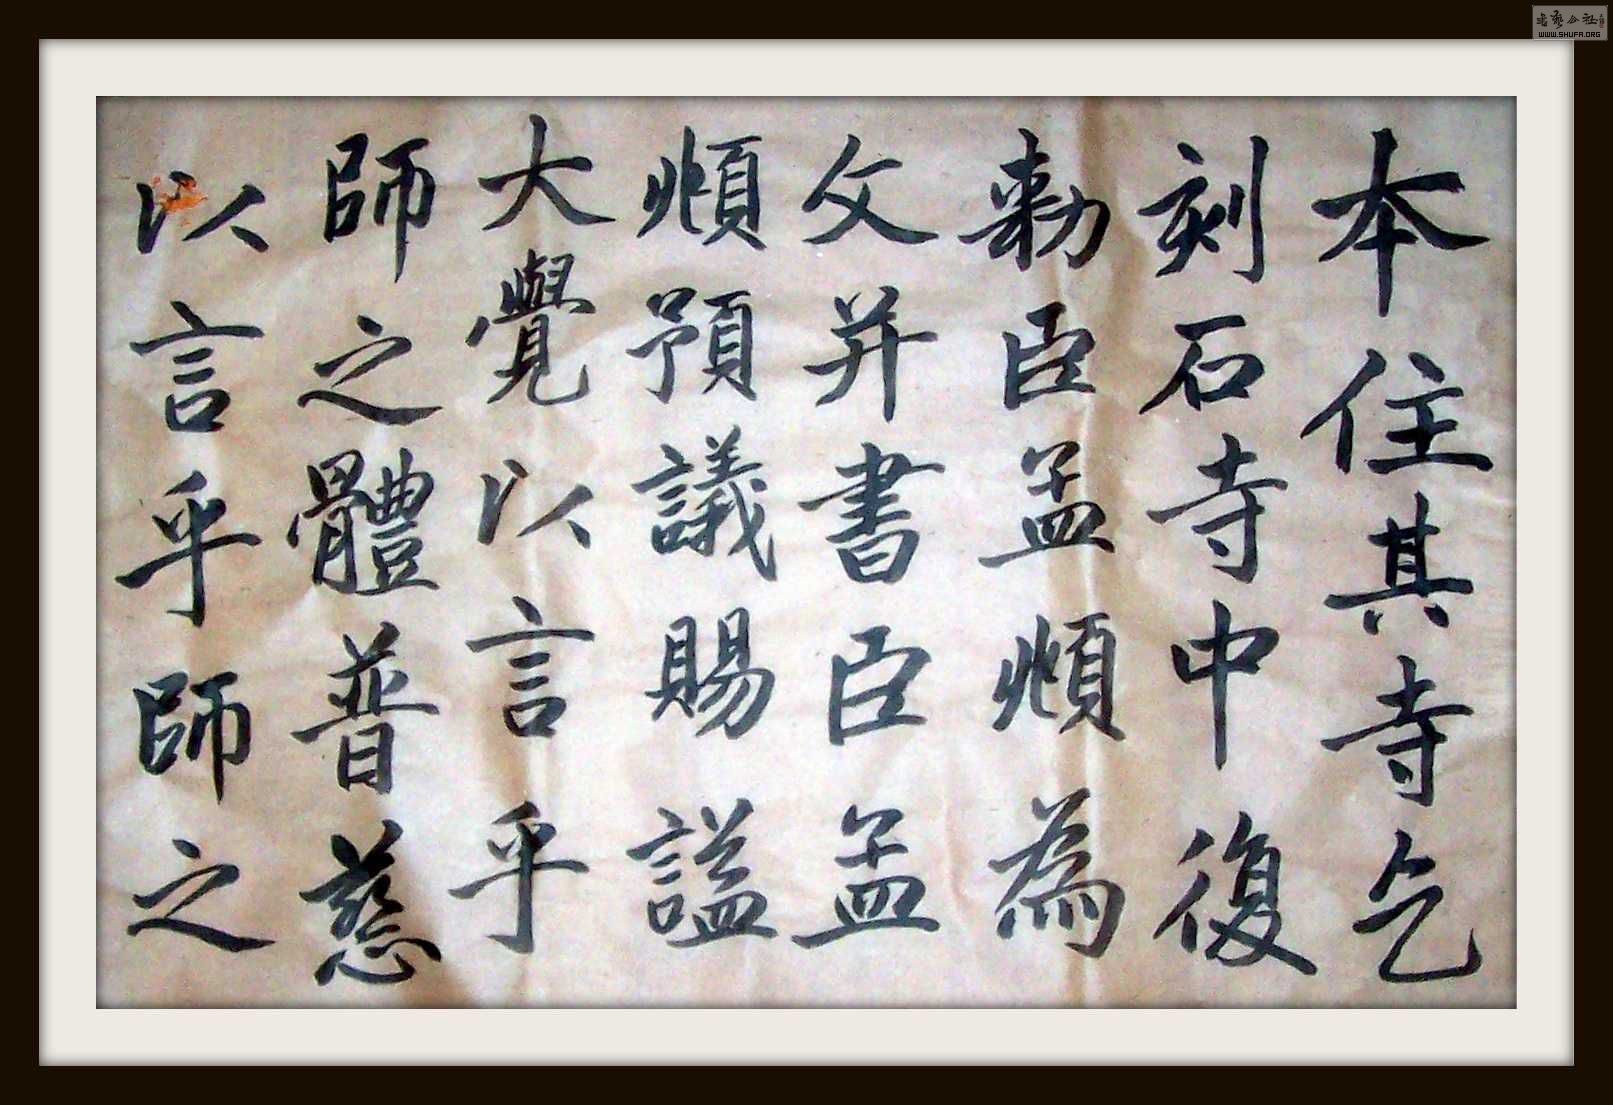 本住其寺乞
刻石寺中復
勅臣孟頫為
文并書臣孟
頫預議賜謚
大覺以言乎
師之體普慈
以言乎師之
書藝公社
WWW.SHUFA.ORG